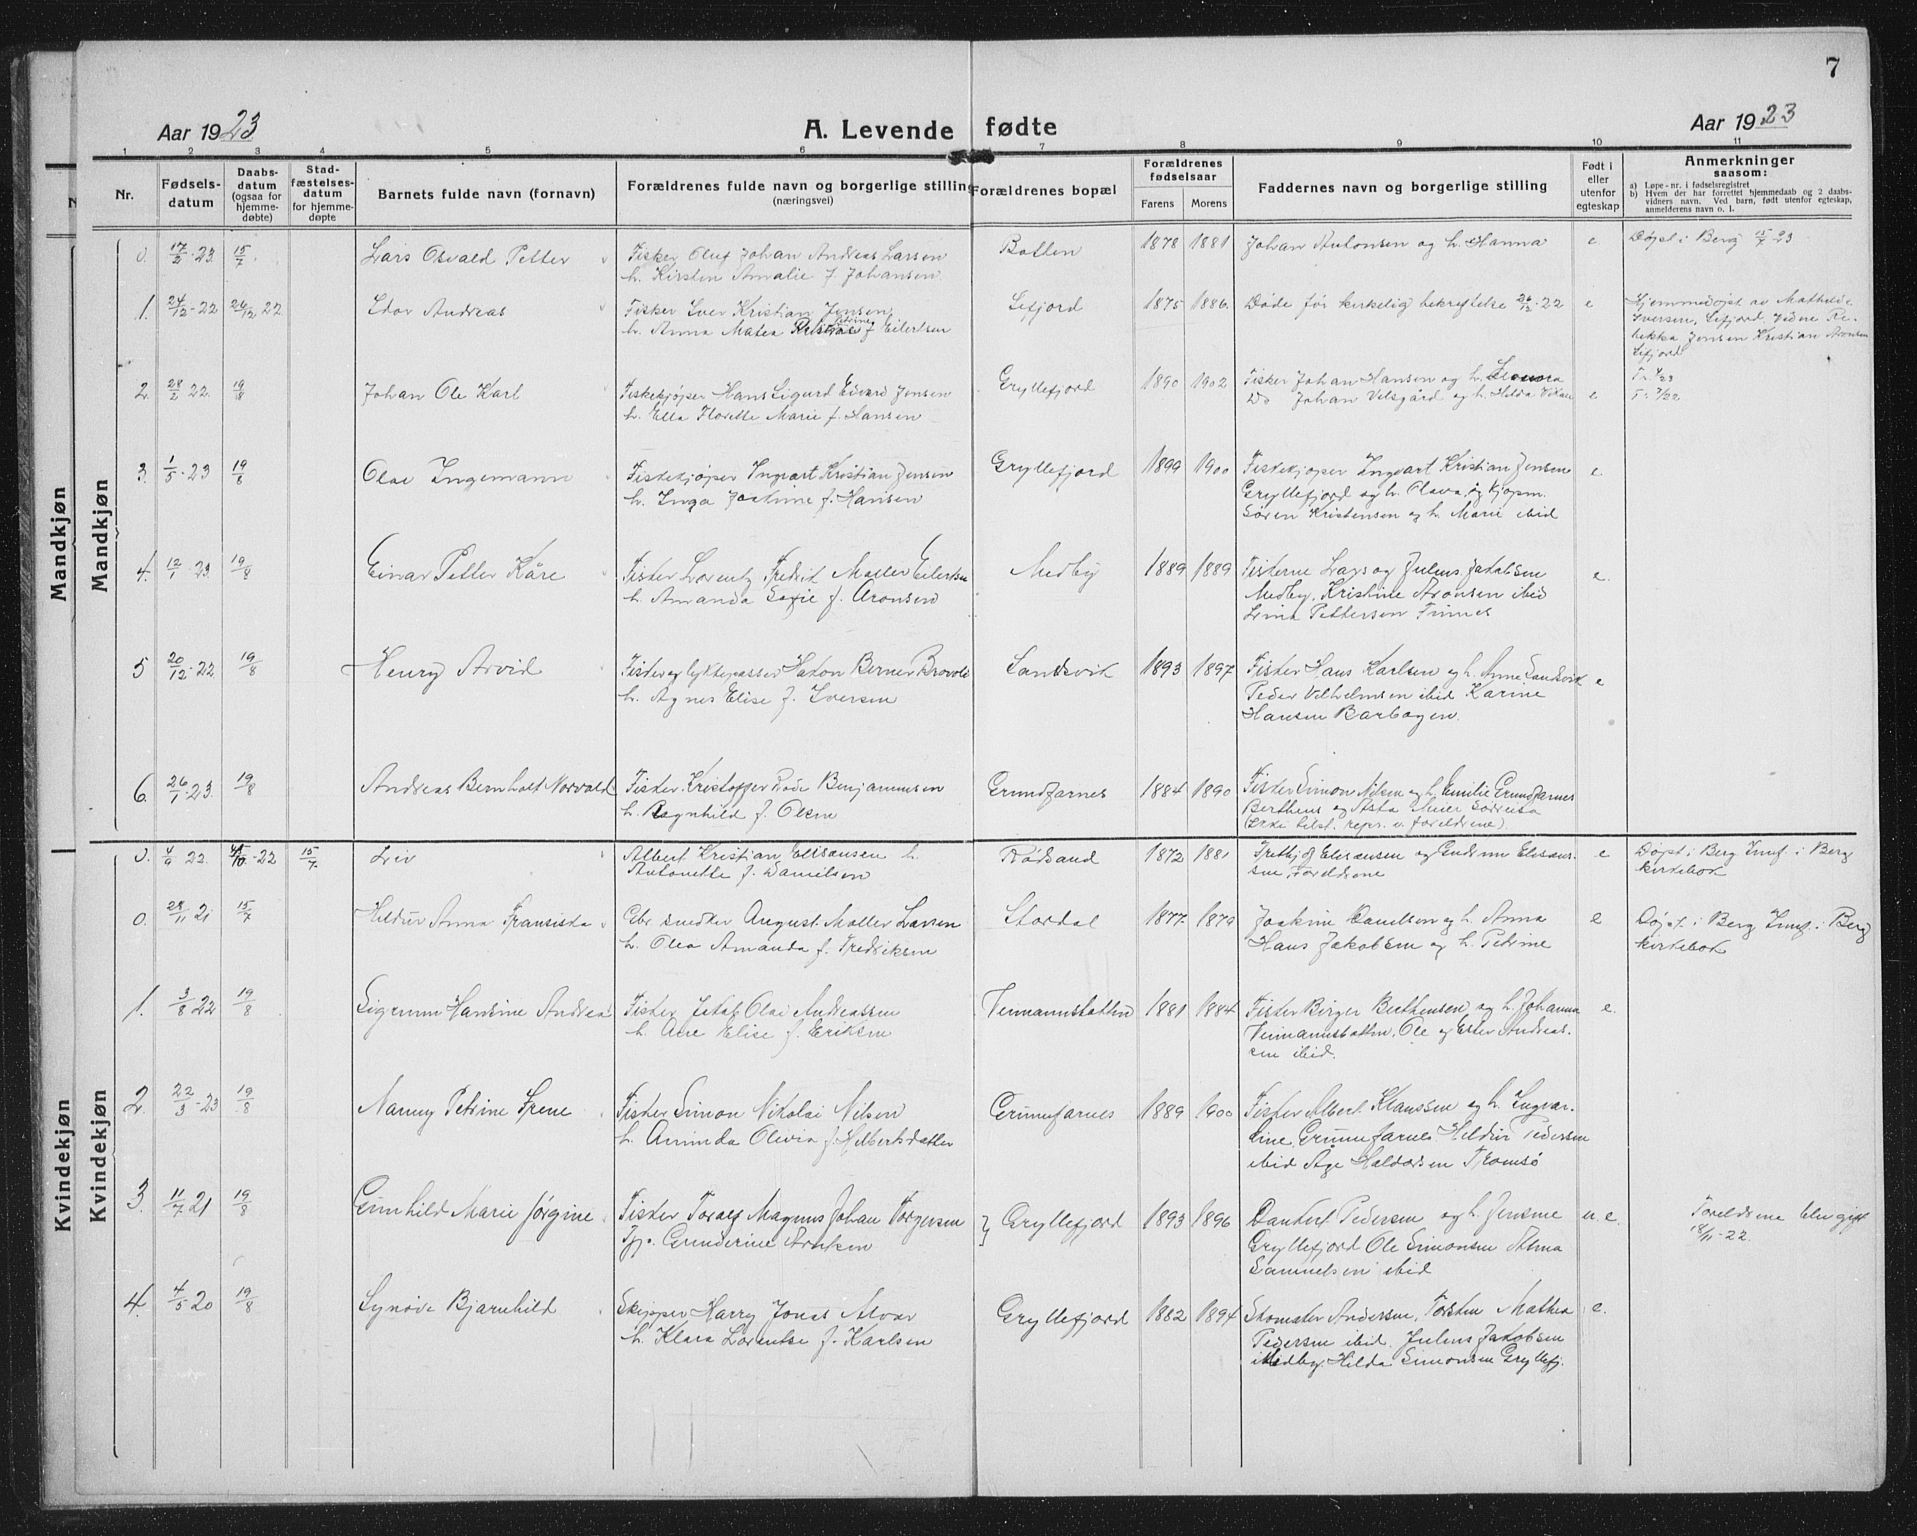 7
Aar 1923
A. Levende fødte
Aar 1923
1 2 3 4 5 6 7 8 9 10 11
Nr.
Fødsels-
datum
Daabs-
datum
(ogsaa for
hjemme-
døbte)
Stad-
fæstelses-
datum
for hjemme-
døpte
Barnets fulde navn (fornavn)
Forældrenes fulde navn og borgerlige stilling
(næringsvei)
Forældrenes bopæl
Forældrenes
fødselsaar
Farens Morens
Faddernes navn og borgerlige stilling
Født i
eller
utenfor
egteskap
Anmerkninger
saasom:
a) Løpe-nr. i fødselsregistret
b) Hvem der har forrettet hjemmedaab og 2 daabs-
vidners navn. Ved barn, født utenfor egteskap,
anmelderens navn o. l.
Mandkjøn
Mandkjøn
0. 17/2 23. 15/7. Lars Osvald Petter
Fisker Oluf Johan Andreas Larsen
h. Kirsten Amalie f. Johansen
Botten 1878 1881
Johan Antonsen og h. Hanna
e
Døpt i Berg 15/7 23
1. 24/12-22 26/12 22 Edor Andreas
Fisker Iver Kristian Jensen,
h. Anna Matea Petrine f Eilertsen
Lefjord 1875 1886.
Døde før kirkelig bekreftelse 26/12-22
e
Hjemmedøpt av Mathilde
Iversen, Lefjord. Vidne Re-
bekka Jensen Kristian Aronsen
Lefjord
2. 28/2 22. 19/8 Johan Ole Karl
Fiskekjøper Hans Sigurd Edvard Jensen
h. Ella Florette Marie f. Hansen
Gryllefjord 1890 1902
Fisker Johan Hansen og h. Leonora
Do Johan Velsgård og h. Hilda
e
3. 1/5-23 19/8 Olai Ingemann
Fiskekjøper Ingvart Kristian Jensen
h. Inga Joakine f. Hansen
Gryllefjord 1899 1900
Fiskekjøper Ingvart Kristian Jensen
Gryllefjord og h. Olava, og kjøpm.
Søren Kristensen og h. Marie ibid
e.
4. 12/1-23. 19/8 Einar Petter Kåre
Fisker Lorentz Fredrik Møller Eilertsen
h. Amanda Sofie f. Aronsen
Medby 1889 1889
Fiskerne Lars og Julius Jakobsen
Medby, Kristine Aronsen ibid
Lina Pettersen Finnes
e.
5 20/12-22 19/8 Henry Arvid
Fisker og lyktepasser Hakon Berner Brovold
h. Agnes Elise f. Iversen
Sandsvik 1893 1897
Fisker Hans Karlsen og h. Anne Sandsvik
Peder Vilhelmsen ibid Karine
Hansen Barbogen.
e
6. 26/1-23. 19/8 Andreas Bernholt Norvald
Fisker Kristoffer Røde Benjaminsen
h. Ragnhild f. Olsen
Grundfarnes 1884 1890
Fisker Simon Nilsen og h. Emilie Grundfarnes
Berthens og Asta Meier Sørreisa
(Ikke tilst. repr. v. foreldrene).
Kvindekjøn
Kvindekjøn
0. 4/9 22. /10-22 15/7 Liv
Albert Kristian Elisæusen h.
Antonette f. Danielsen
Rødsand 1872 1881
Fritjof Elisæusen og Gudrun Elisæus-
sen, foreldrene
e
Døpt i Berg Innf. i Berg
kirkebok
0. 28/11 21 15/7 Hildur Anna Fransiska
Gbr. snedker August Møller Larsen
h. Olea Amanda f. Fredriksen
Stordal 1877. 1879
Joakim Danielsen og h. Anna
Hans Jakobsen og h. Petrine
e
Døpt i Berg Innf. i Berg
kirkebok
1. 3/8 22 19/8 Sigrunn Hansine Andrea
Fisker Jakob Olai Andreassen
h. Ane Elise f. Eriksen
Veimannsbotten 1881 1884
Fisker Birger Berthensen, og h. Johanna
Veimannsbotten, Ole og Ester Andreas-
sen ibid.
e.
2. 22/3-23 19/8 Nanny Petrine Irene
Fisker Simon Nikolai Nilsen
h. Aminda Olivia f. Hilbertsdatter
Grunnfarnes 1889 1900
Fisker Albert Klaussen og h. Ingvar-
dine Grunnfarnes Hildur Pedersen
ibid Åge Haldorsen Tromsø
3. 11/7 21 19/8 Gunhild Marie Jørgine
Fisker Toralf Magnus Johan Torgersen
Tjp. Grunderine Arntsen
} Gryllefjord 1893 1896
Dankert Pedersen og h. Jensine
Gryllefjord Ole Simonsen Alma
Samuelsen ibid
u. e.
Foreldrene blev gift
18/11-22.
4. 4/5 20 19/8 Synøve Bjarnhild
Skipper Harry Jonas Alvar
h. Klara Lorentse f. Karlsen
Gryllefjord 1882 1894
Skomaker Andersen, Torsten Mathea
Pedersen ibid. Julius Jakobsen
Medby. Hilda Simonsen Gryllefj.
e.